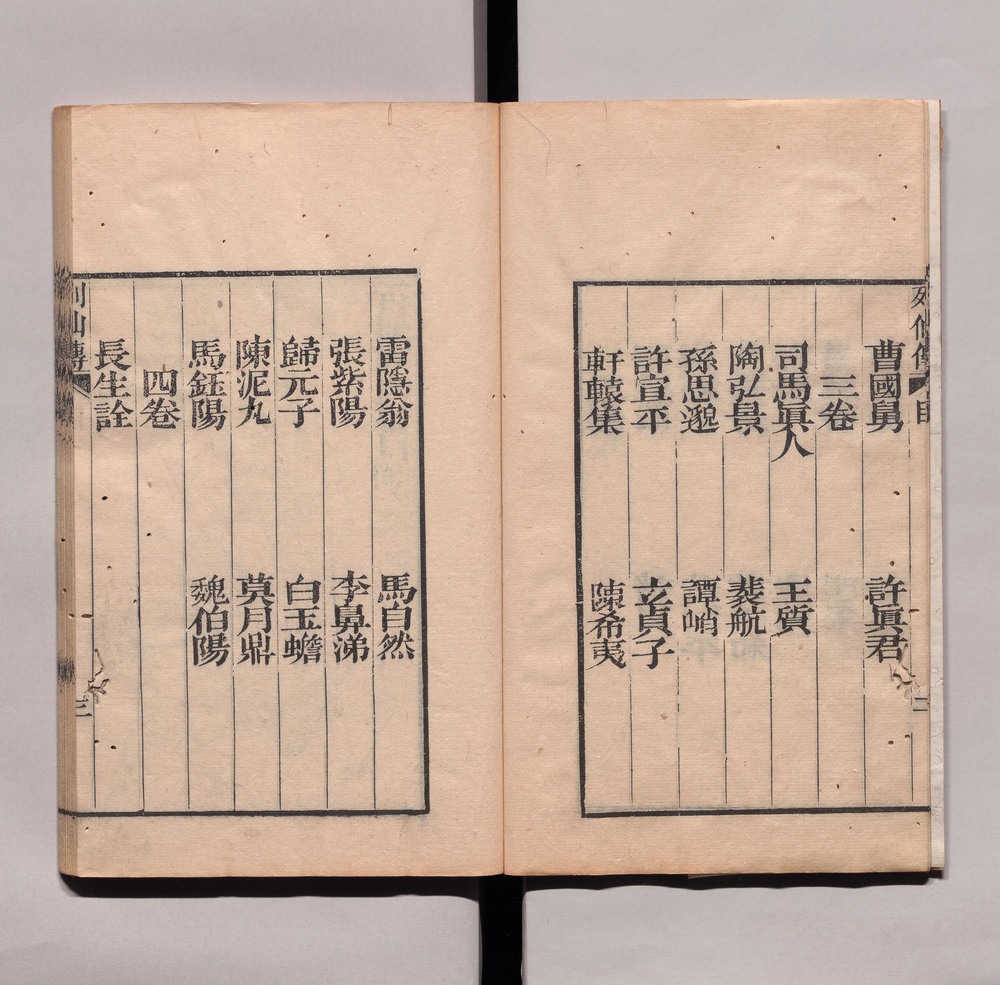 列仙傳 目 二
曹國舅 許眞君
三卷
司馬眞人 王質
陶弘景 裴航
孫思邈 譚峭
許宣平 玄貞子
軒轅集 陳希夷
雷隱翁 馬自然
張紫陽 李鼻涕
歸元子 白玉蟾
陳泥丸 莫月鼎
馬鈺陽 魏伯陽
四卷
長生詮
列仙傳 三